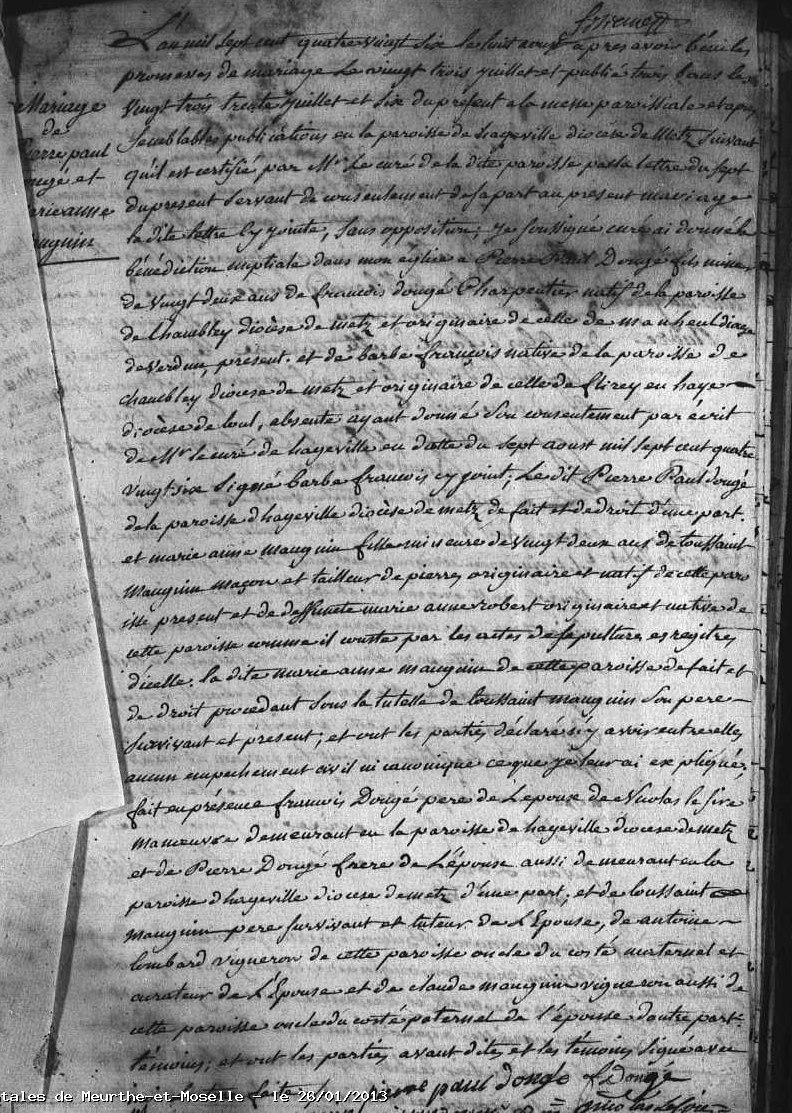 Mariage
de
pierre paul
Dougé et
marie anne
mauguin
L'an mil sept cent quatre vingt six le huit aoust apres avoir béni les
promesses de mariage le vingt trois juillet et publié trois bans le
vingt trois trente juillet et six du present a la messe paroissiale et apres
semblables publications en la paroisse de hageville diocése de Metz suivant
qu'il est certifié par Mr Le curé de la dite paroisse par sa lettre du sept
du present servant de consentement de sa part au present mariage
la dite lettre cy jointe, sans opposition; je soussigné curé ai donné la
bénédiction nuptiale dans mon église a Pierre Paul Dougé fils mineur
de vingt deux ans de francois dougé Charpentier natif de la paroisse
de chambley diocèse de metz et originaire de celle de manheul diocese
de verdun, present. et de barbe françois native de la paroisse de
chambley diocese de metz et originaire de celle de flirey en haye
diocèse de toul, absente ayant donné son consentement par écrit
de Mr le curé de hageville en datte du sept aoust mil sept cent quatre
vingt six signé barbe francois cy joint; Le dit Pierre Paul dougé
de la paroisse d'hageville diocèse de metz de fait et de droit d'une part.
et marie anne mauguin fille mineure de vingt deux ans de toussaint
mauguin maçon et tailleur de pierres originaire et natif de cette paro
isse present et de deffunte marie anne robert originaire et native de
cette paroisse comme il conste par les actes de sepulture es regitres
d'icelle. la dite marie anne mauguin de cette paroisse de fait et
de droit procedant sous la tutelle de toussaint mauguin son pere
survivant et present, et ont les parties déclaré n'y avoir entre elles
aucun empechement civil ni canonique ce que je leur ai expliqué,
fait en présence francois Dougé pere de L'epoux de Nicolas le sire
manoeuvre demeurant en la paroisse de hageville diocese de metz
et de Pierre Dougé frere de L'épouse aussi demeurant en la
paroisse d'hageville diocese de metz d'une part, et de toussaint
mauguin pere survivant et tuteur de L'Epouse, de antoine
lombard vigneron de cette paroisse oncle du costé maternel et
curateur de L'Epouse et de claude mauguin vigneron aussi de
cette paroisse oncle du costé paternel de l'épouse d'autre part
témoins; et ont les parties avant dites et les témoins signé avec
pierre paul dougé f Dougé
tales de Meurthe-et-Moselle - le 28/01/2013